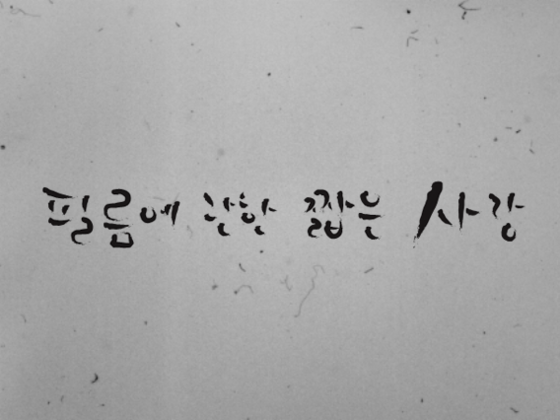 필름에 관한 짧은 사랑